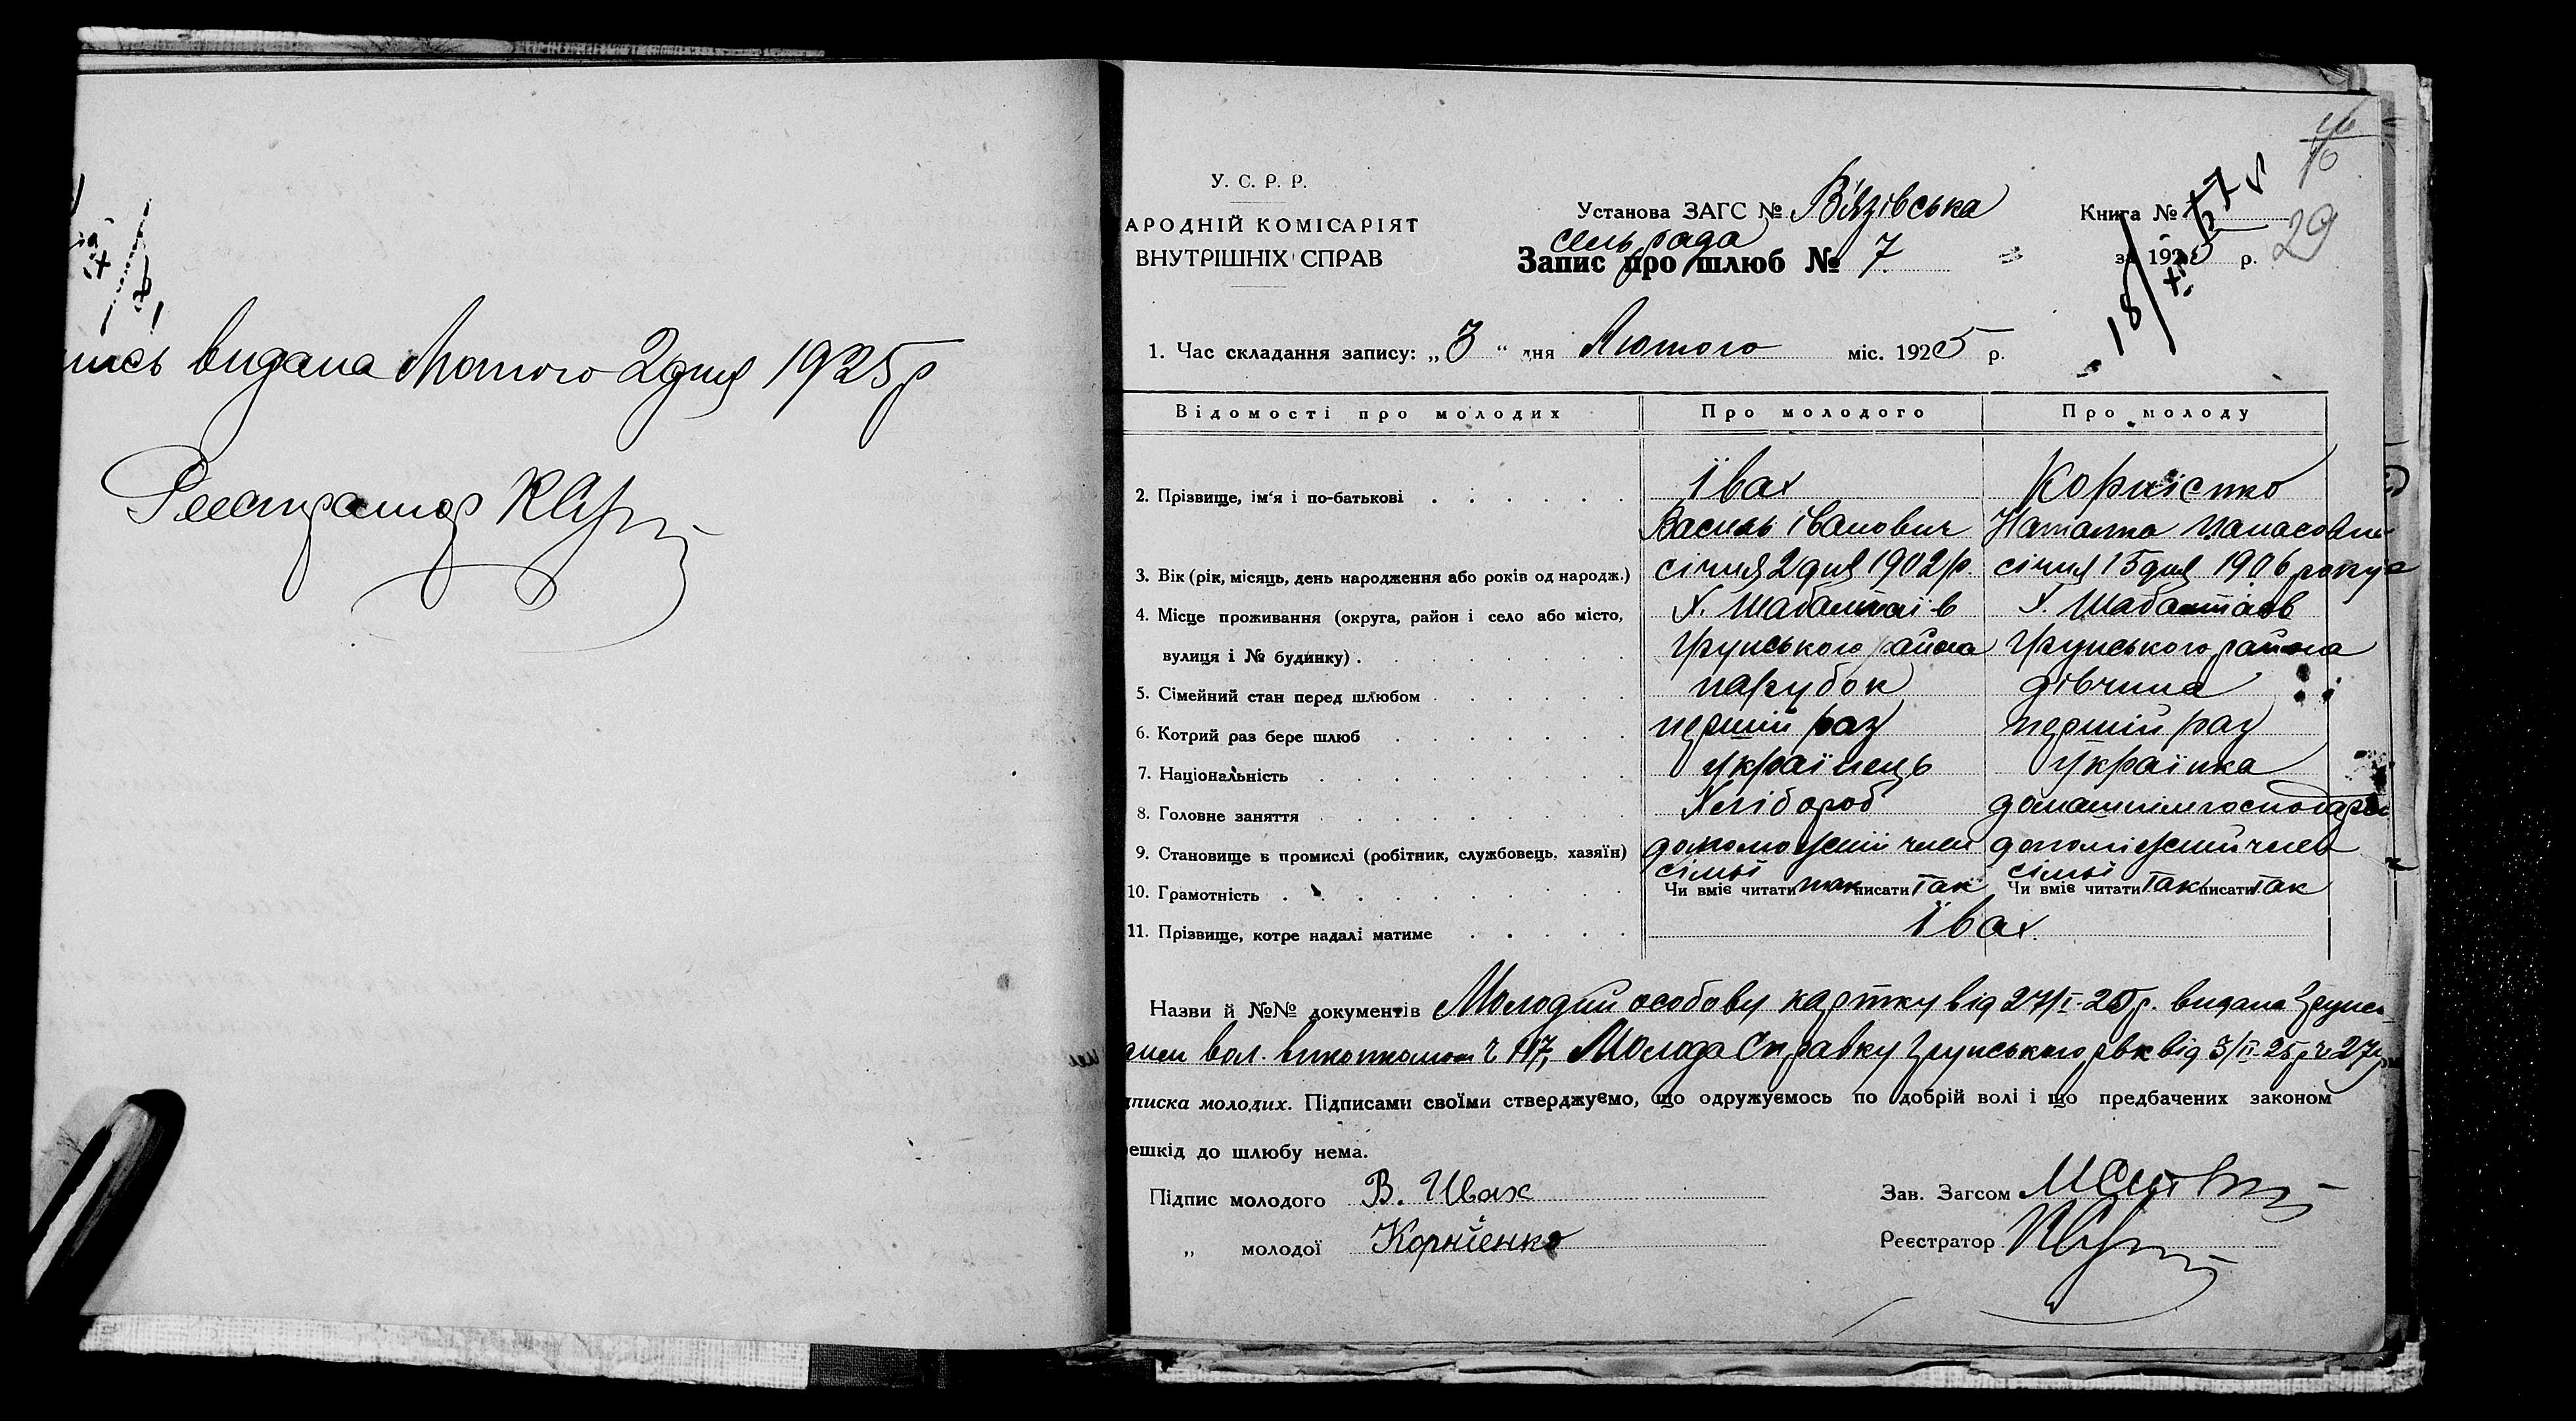 видана Лютого 2 дня 1925 р
Реєстратор
У. С. Р. Р.
АРОДНІЙ КОМІСАРІЯТ
ВНУТРІШНІХ СПРАВ
Установа ЗАГС № Вязівська
сельрада
Запис про шлюб № 7
Книга №
за 1925 р.
29
1. Час складання запису: „3“ дня Лютого міс. 1925 р.
Відомості про молодих Про молодого Про молоду
2. Прізвище, ім'я і по-батькові Івах Корнієнко
Василь Іванович Наталка Панасовна
3. Вік (рік, місяць, день народження або років од народж.) січня 2 дня 1902 р. січня 15 дня 1906 року
4. Місце проживання (округа, район і село або місто, Х. Х.
вулиця і № будинку). Грунського района Грунського района
5. Сімейний стан перед шлюбом парубок дівчина
6. Котрий раз бере шлюб перший раз перший раз
7. Національність українець українка
8. Головне заняття Хлібороб
9. Становище в промислі (робітник, службовець, хазяїн) член член
сімьї сімьї
10. Грамотність Чи вміє читати так писати так Чи вміє читати так писати так
11. Прізвище, котре надалі матиме Івах
Назви й №№ документів Молодий особову картку від 27/I-25 р. видана
вол. ч 117, Молода Справку Грунського рвк від 3/II-25 р ч 27
писка молодих. Підписами своїми стверджуємо, що одружуємось по добрій волі і що предбачених законом
ешкід до шлюбу нема.
Підпис молодого В. Ивах
Зав. Загсом
„ молодої Корнієнко
Реєстратор